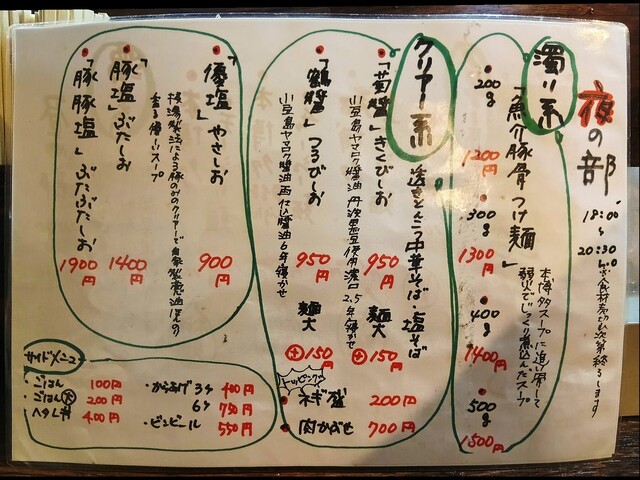 夜の部
18:00〜20:30 L.O
食材売切れ次第終了します
濁り系
「魚介豚骨つけ麺」
本博多スープに追い帰して
弱火でじっくり煮込んだスープ
・200g 1200円
・300g 1300円
・400g 1400円
・500g 1500円
クリアー系 透きとんこつ中華そば・塩そば
・「菊醬」きくびしお 950円 麺大 +150円
小豆島ヤマロク醬油 丹波黒豆使用 濃口 2.5年寝かせ
・「鶴醬」つるびしお 950円 麺大 +150円
小豆島ヤマロク醬油 再仕込醬油 6年寝かせ
トッピング
・ネギ盛 200円
・肉かぶせ 700円
・「優塩」やさしお 900円
豚のみのクリアーで自家製
香る優しいスープ
・「豚塩」ぶたしお 1400円
・「豚豚塩」ぶたぶたしお 1900円
サイドメニュー
・ごはん 100円
・ごはん大 200円
・ヘタレ丼 400円
・からあげ 3ヶ 400円
6ヶ 750円
・ビンビール 550円